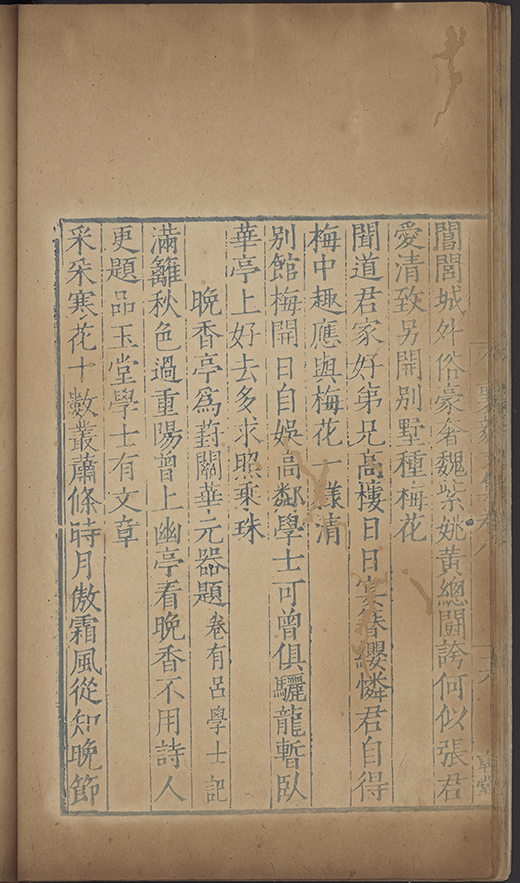 閶闔城外俗豪奢魏紫姚黃總鬪誇何似張君
愛清致另開別墅種梅花
聞道君家好弟兄高樓日日宴簪纓憐君自得
梅中趣應與梅花一樣清
別館梅開日自娛高鄰學士可曾俱驪龍暫臥
華亭上好去多求照乘珠
晚香亭爲葑關華元器題卷有呂學士記
滿籬秋色過重陽曾上幽亭看晚香不用詩人
更題品玉堂學士有文章
采朵寒花十數叢蕭條時月傲霜風從知晚節